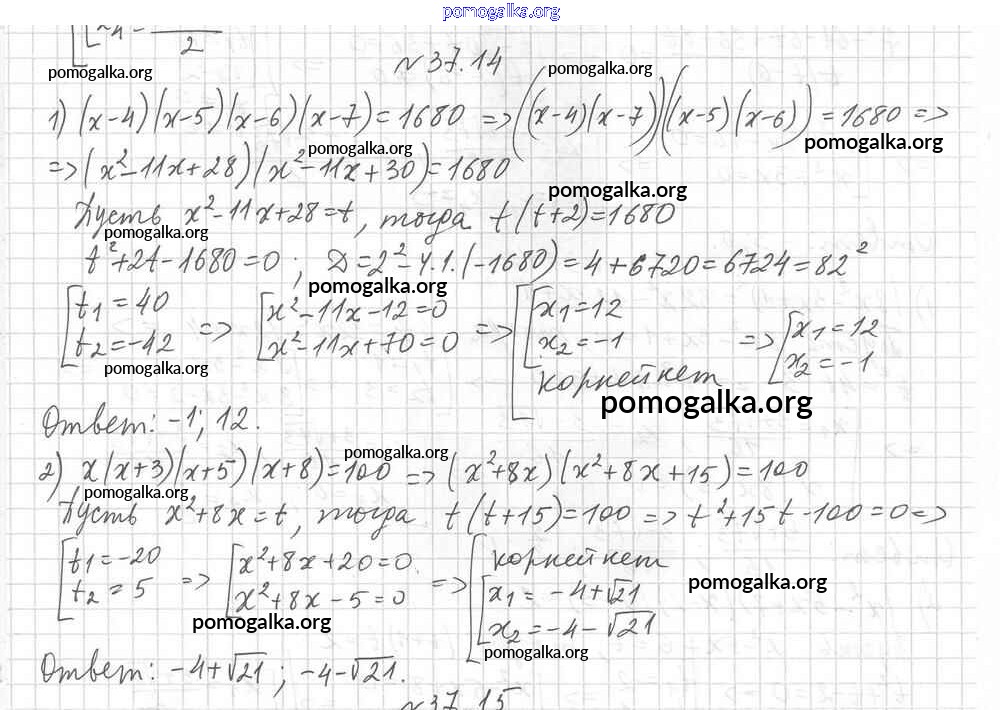 pomogalka.org
2
№ 37.14
pomogalka.org pomogalka.org
1) (x-4)(x-5)(x-6)(x-7)=1680 => ((x-4)(x-7))((x-5)(x-6))=1680 =>
pomogalka.org pomogalka.org
=> (x²-11x+28)(x²-11x+30)=1680
pomogalka.org
Пусть x²-11x+28=t, тогда t(t+2)=1680
pomogalka.org
t²+2t-1680=0; D=2²-4·1·(-1680)=4+6720=6724=82²
pomogalka.org
[t₁=40 => [x²-11x-12=0 => [[x₁=12 => [x₁=12
t₂=-42 x²-11x+70=0 x₂=-1 x₂=-1
pomogalka.org
корней нет
pomogalka.org
Ответ: -1; 12.
pomogalka.org
2) x(x+3)(x+5)(x+8)=100 => (x²+8x)(x²+8x+15)=100
pomogalka.org
Пусть x²+8x=t, тогда t(t+15)=100 => t²+15t-100=0 =>
[t₁=-20 => [x²+8x+20=0 => [корней нет
t₂=5 x²+8x-5=0 [x₁=-4+√21
pomogalka.org
x₂=-4-√21
pomogalka.org
pomogalka.org
Ответ: -4+√21; -4-√21.
№ 37.15